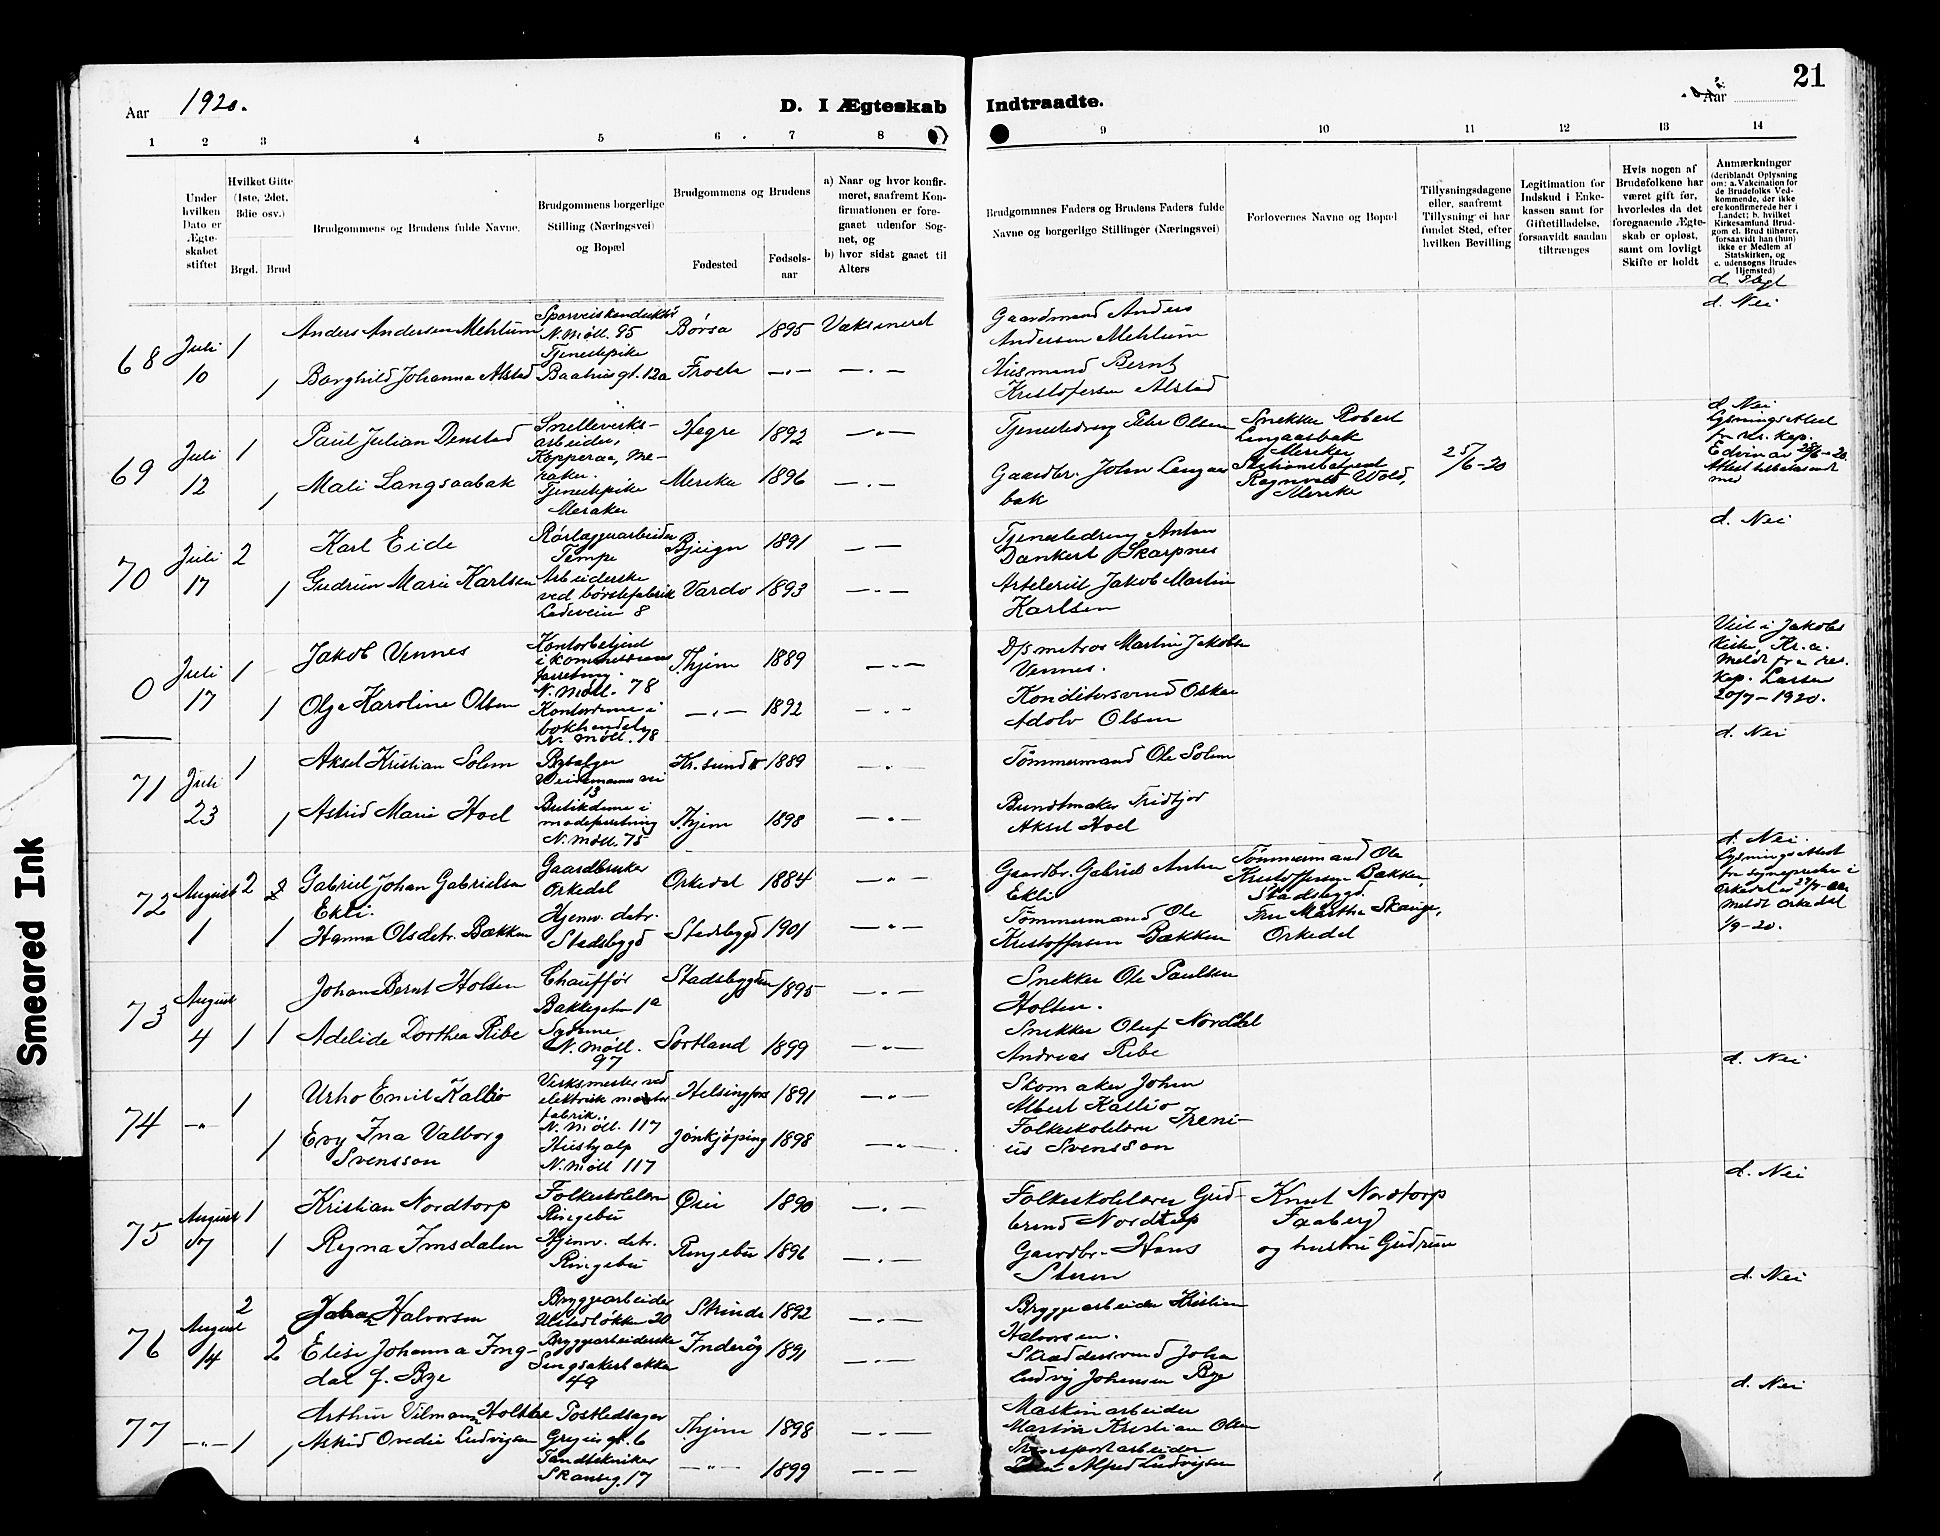 Aar 1920.
D. I Ægteskab Indtraadte.
Aar
21
1 2 3 4 5 6 7 8 9 10 11 12 13 14
Under hvilken Dato er Ægteskabet stiftet
Hvilket Gifte (1ste, 2det, 3die osv.)
Brgd. Brud
Brudgommens og Brudens fulde Navne.
Brudgommens borgerlige Stilling (Næringsvei) og Bopæl
Brudgommens og Brudens
Fødested
Fødselsaar
a) Naar og hvor konfirmeret, saafremt Konfirmationen er foregaaet udenfor Sognet, og
b) hvor sidst gaaet til Alters
Brudgommnes Faders og Brudens Faders fulde Navne og borgerlige Stillinger (Næringsvei)
Forlovernes Navne og Bopæl
Tillysningsdagene eller, saafremt Tillysning ei har fundet Sted, efter hvilken Bevilling
Legitimation for Indskud i Enkekassen samt for Giftetilladelse, forsaavidt saadan tiltrænges
Hvis nogen af Brudefolkene har været gift før, hvorledes da det foregaaende Ægteskab er opløst, samt om lovligt Skifte er holdt
Anmærkninger (deriblandt Oplysning om: a. Vakcination for de Brudefolks Vedkommende, der ikke ere konfirmerede her i Landet; b. hvilket Kirkesamfund Brudgom el. Brud tilhører, forsaavidt han (hun) ikke er Medlem af Statskirken, og c. udensogns Brudes Hjemsted)
d. Slegt
68 Juli 10 1 Anders Andersen Mehlum Sporveiskonduktør N. Møll. 95 Børsa 1895 Vaksineret Gaardmand Anders Andersen Mehlum d. Nei
1 Borghild Johanna Alstad Tjenestepike Baahus gt. 12a Frosta Husmand Bernt Kristofersen Alstad
69 Juli 12 1 Paul Julian Denstad arbeider, Kopperaa, Meraker Hegre 1892 Tjenestedreng Peder Olsen Snekker Robert Langaasbak Meraker 25/6-20 d. Nei
1 Mali Langsaabak Tjenestepike Meraker 1896 Gaardbr. John Langaasbak Stationsbetjent Ragnvald Wold, Meraker
70 Juli 17 2 Karl Eide Rørlæggerarbeider Tempe Bjugn 1891 Tjenestedreng Anton Dankert Skarpnes d. Nei
1 Gudrun Marie Karlsen Arbeiderske ved børstefabrik Ladeveien 8 Vardø 1893 Jakob Martin Karlsen
0 Juli 17 1 Jakob Vennes Kontorbetjent i N. Møll. 78 T.hjem 1889 D/s matros Martin Jakobsen Vennes. Viet i Jakobs Kirke, Kr.a. Meldt fra res. kap. Larsen 20/7-1920.
1 Olga Karoline Olsen Kontordame i bokhandel N. Møll. 78 1892 Konditorsvend Oskar Adolv Olsen
71 Juli 23 1 Aksel Kristian Solem Weidemanns vei 13 Kr.sund N 1889 Tømmermand Ole Solem d. Nei
1 Astrid Marie Hoel Butikdame i N. Møll. 75 T.hjem 1898 Buntmaker Fridtjof Aksel Hoel
72 August 1 2 Gabriel Johan Gabrielsen Ekli. Gaardbruker Orkedal Orkedal 1884 Gaardbr. Gabriel Anton Ekli Tømmermand Ole Kristoffersen Bakken, Stadsbygd. d. Nei.
1 Hanna Olsdatr. Bakken Hjemv. datr. Stadsbygd Stadsbygd 1901 Tømmermand Ole Kristoffersen Bakken Fru Martha Skauge, Orkedal meldt Orkedal 1/9-20.
73 August 4 1 Johan Bernt Holten Chauffør Bakkegaten 1a Stadsbygden 1895 Snekker Ole Paulsen Holten.
1 Adelide Dorthea Ribe Sydame N. Møll. 97 Sortland 1899 Snekker Oluf Nordtal Andreas Ribe
74 1 Urho Emil Kallio Verksmester ved elektrisk motorfabrik. N. Møll. 117 Helsingfors 1891 Skomaker Johan Albert Kallio d. Nei
1 Evy Ina Valborg Svensson Hushjælp N. Møll 117 Jönköping 1898 Folkeskolelærer Irenius Svensson
75 August 7 1 Kristian Nordtorp Folkeskolelærer Ringebu Øier 1890 Folkeskolelærer Gudbrand Nordtorp Knut Nordtorp Faaberg d. Nei
1 Ragna Imsdalen Hjemv. datr. Ringebu Ringebu 1896 Gaardbr. Hans Steren og hustru Gudrun
76 August 14 2 Johan Halvorsen Bryggearbeider Ulstadløkken 20 Strinda 1892 Bryggearbeider Kristian Halvorsen. d. Nei
2 Elise Johanna Ingdal f. Bye Bryggearbeiderske Singsakerbakken 49 Inderøy 1891 Skræddersvend Johan Ludvig Johansen Bye
77 1 Arthur Vilmann Holthe Postledsager T.hjem 1898 Maskinarbeider Martin Kristian Olsen d. Nei
1 Astrid Ovedie Ludvigsen Tandtekniker Skansg. 17 1899 Transportarbeider Alfred Ludvigsen
Smeared Ink